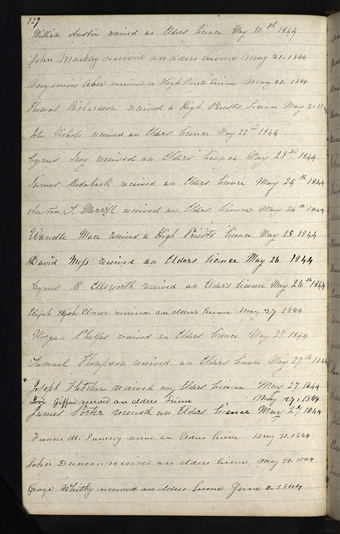 127
William Austin received an Elders licence May 20th 1844
John Markley received an elders licence May 21. 1844
Benjamin received a High Priests licence May 21. 1844
Thomas Richardson received a High Priests Licence May 21
John Nichols received an Elders licence May 22nd 1844
Cyrus received an Elders licence May 23rd 1844
James Rodeback received an Elders licence May 24th 1844
Austin S. Merrill received an Elders Licence May 24th 1844
Wandle Mace received a High Priests licence May 25 1844
David Moss received an Elders licence May 26 1844
Cyrus Ellsworth received an Elders licence May 26th 1844
Elijah received an elders licence May 27. 1844
Morgan Phelps received an Elders licence May 28 1844
Samuel Thompson received an Elders licence May 27th 1844
Joseph Fletcher received an Elders licence May 27. 1844
Levi Gifford received an elders licence May 27. 1844
James Porter received an Elders licence May 1844
Francis M. an Elders licence May 31. 1844
John Duncan received an elders licence May 31. 1844
George Whitby received an elders licence June 2. 1844